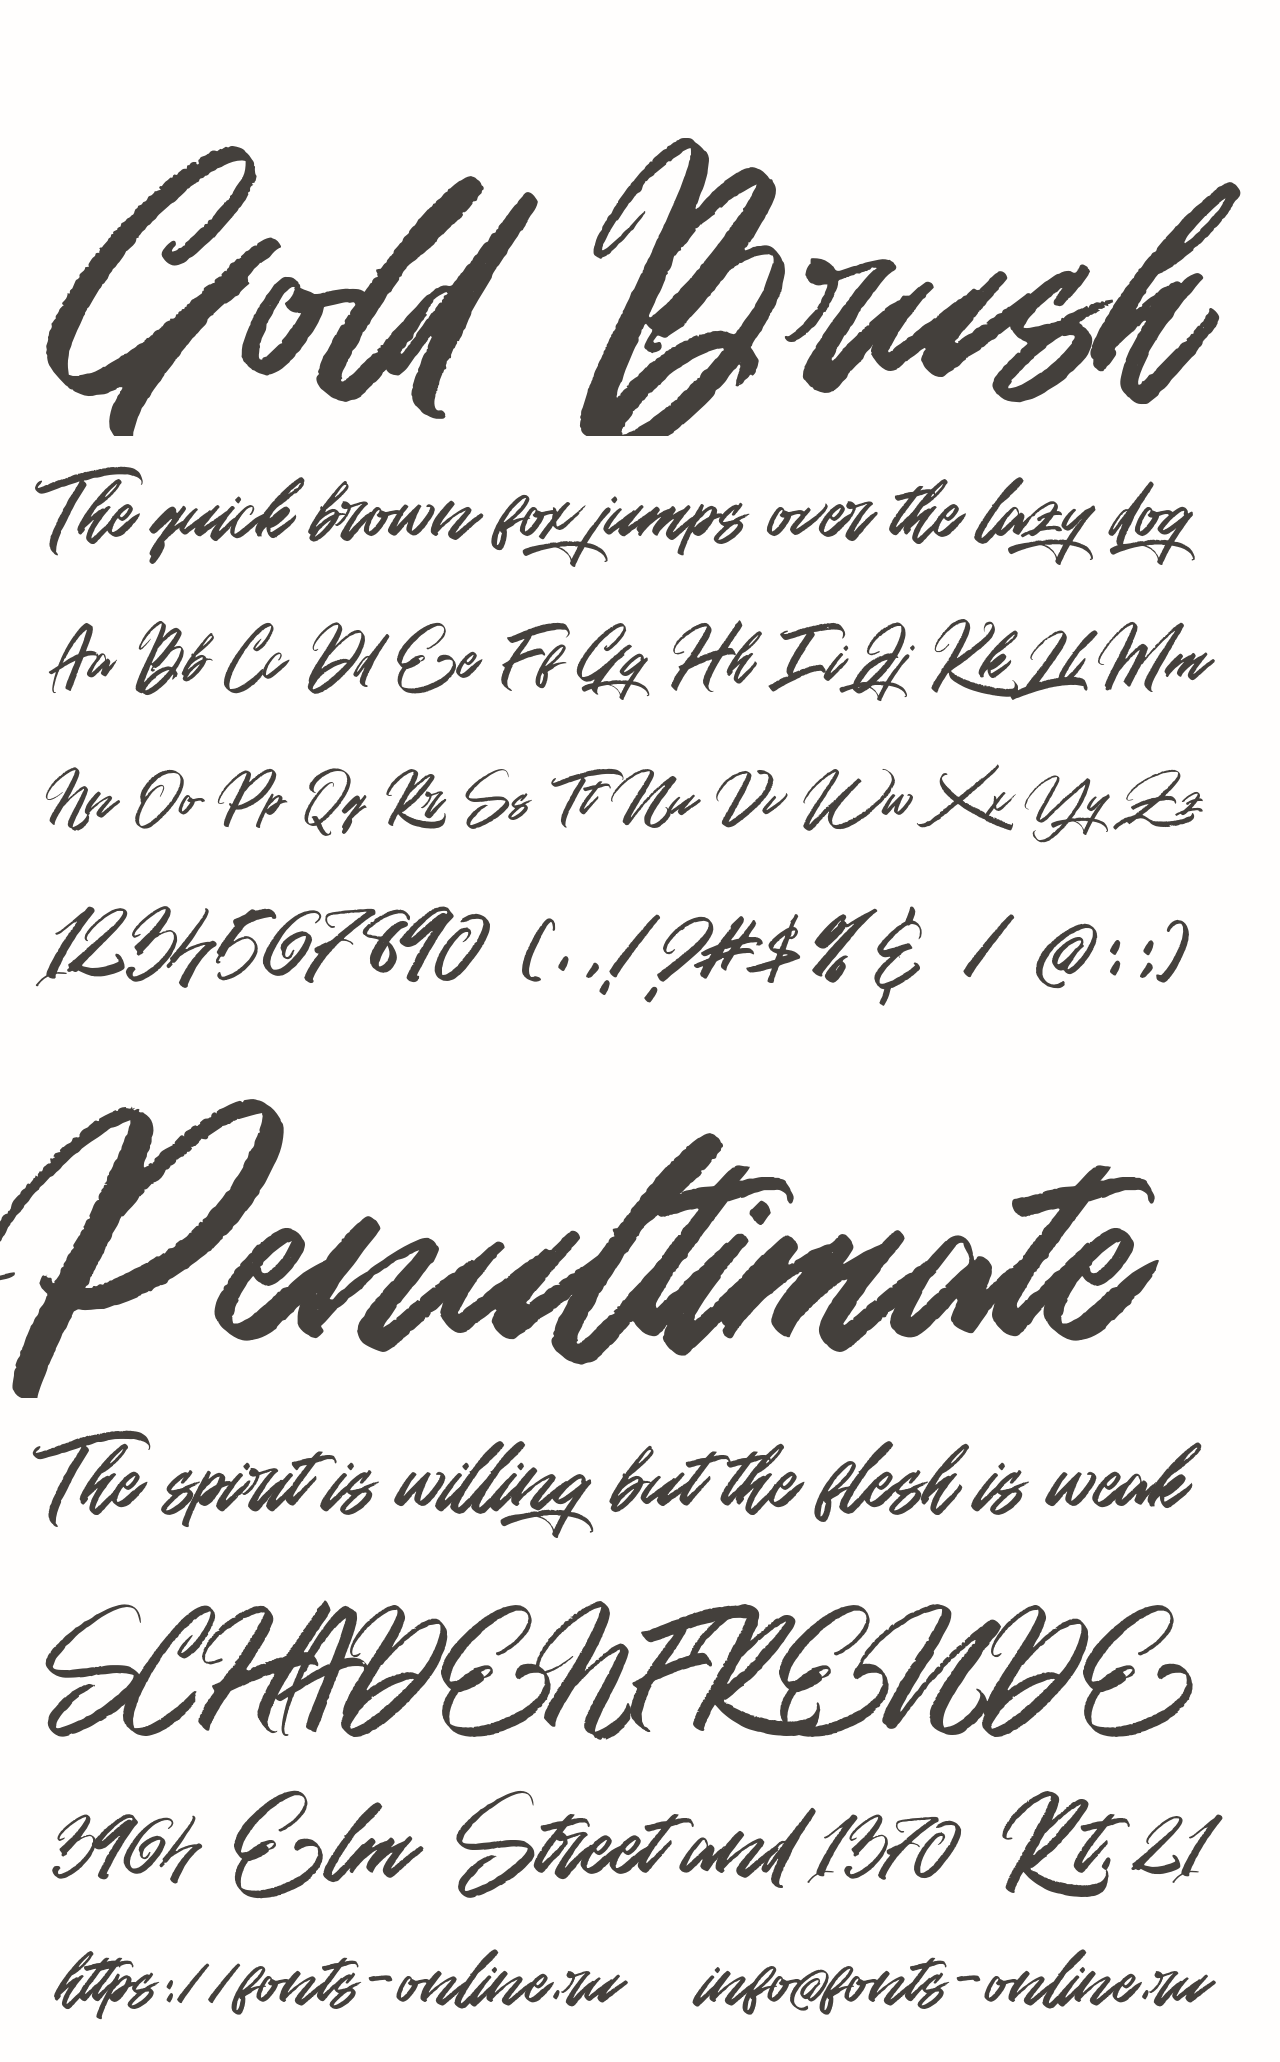 Gold Brush
The quick brown fox jumps over the lazy dog
Aa Bb Cc Dd Ee Ff Gg Hh Ii Jj Kk Ll Mm
Nn Oo Pp Qq Rr Ss Tt Uu Vv Ww Xx Yy Zz
1234567890 (.,!?#$%& / @:;)
Penultimate
The spirit is willing but the flesh is weak
SCHADENFREUDE
3964 Elm Street and 1370 Rt. 21
https://fonts-online.ru info@fonts-online.ru